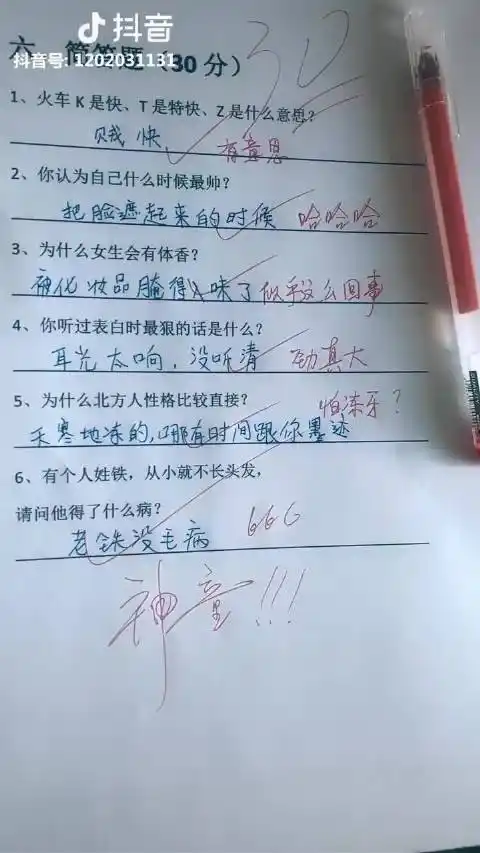 抖音
抖音号: 1202031131
六、简答题（30 分）
30
1、火车 K 是快、T 是特快、Z 是什么意思？
贼快
有意思
2、你认为自己什么时候最帅？
把脸遮起来的时候
哈哈哈
3、为什么女生会有体香？
被化妆品腌得入味了
似乎这么回事
4、你听过表白时最狠的话是什么？
耳光太响，没听清
劲真大
5、为什么北方人性格比较直接？
怕冻牙？
天寒地冻的，哪有时间跟你墨迹
6、有个人姓铁，从小就不长头发，
请问他得了什么病？
老铁没毛病
666
神童!!!